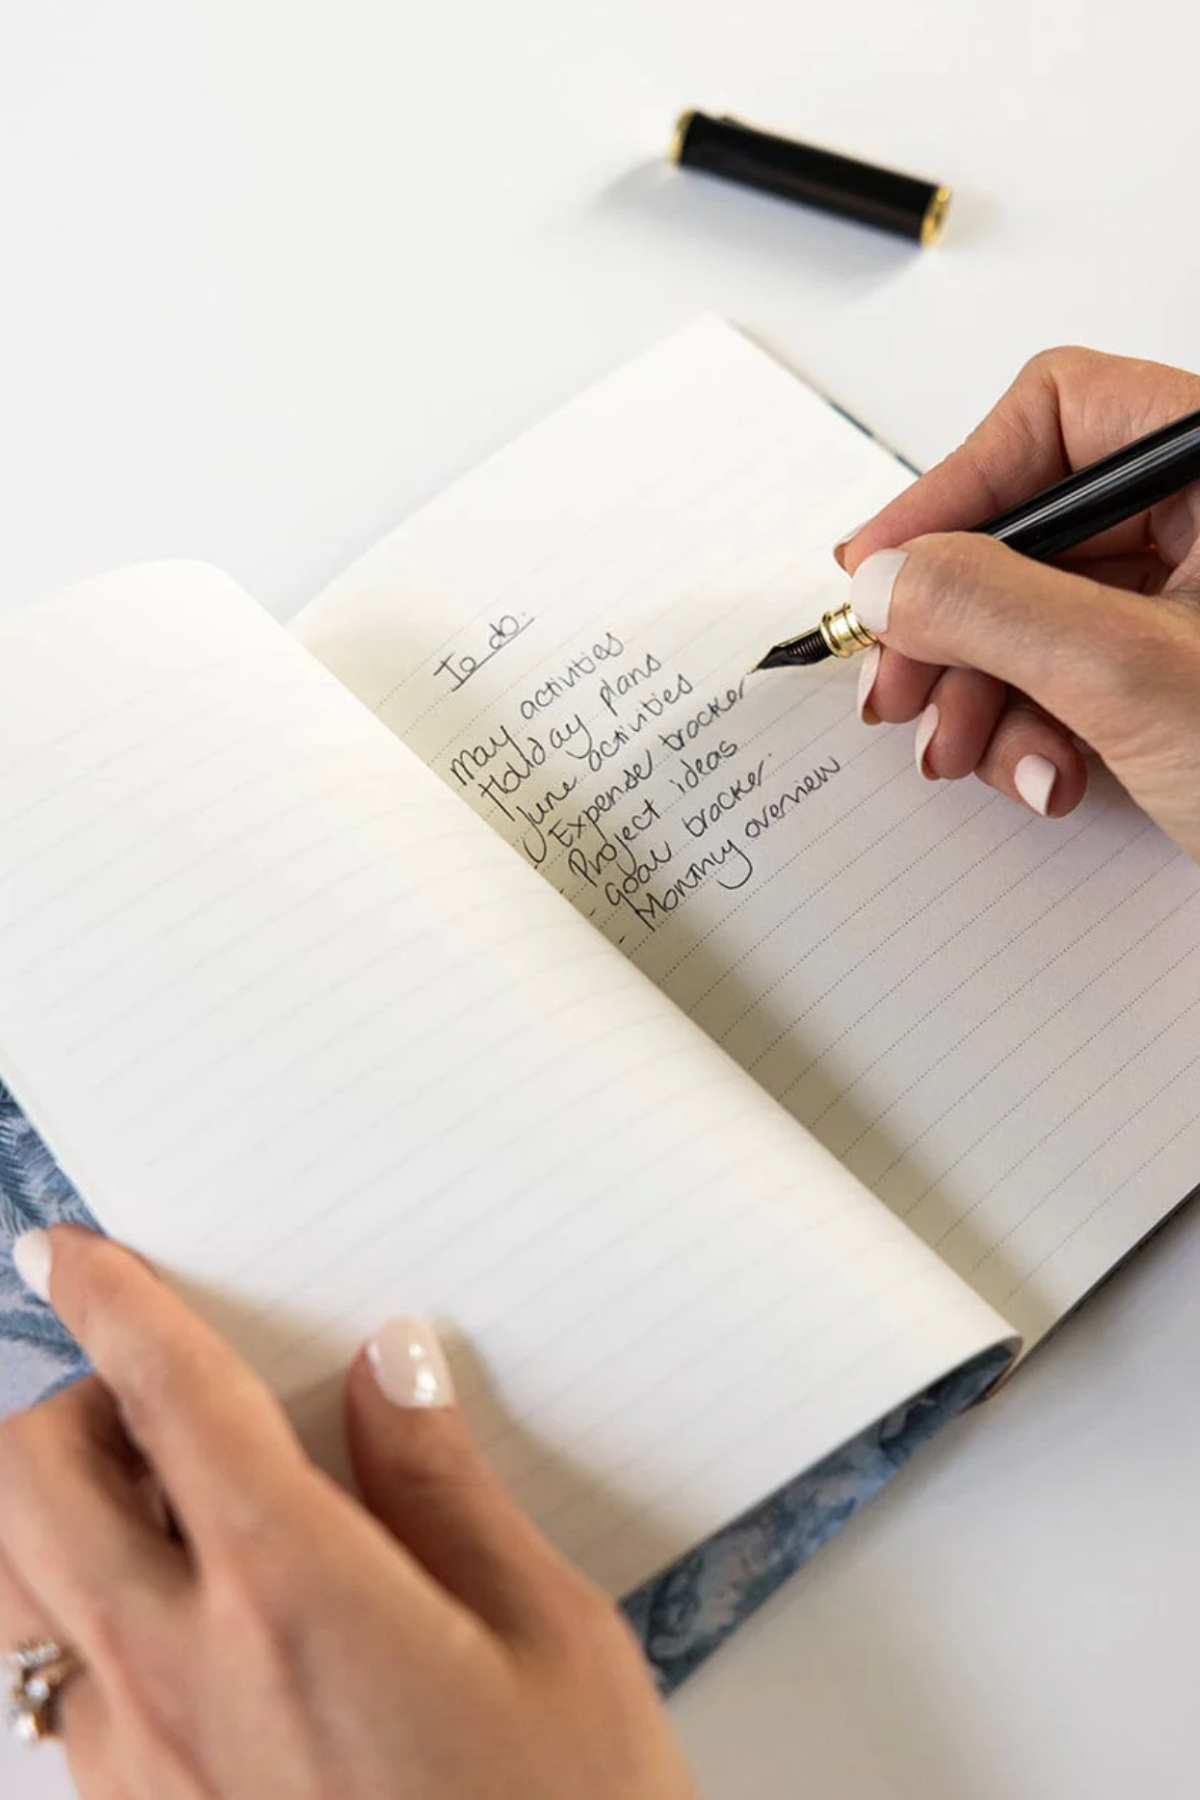 To do:
May activities
Holiday plans
June activities
Expense tracker
- Project ideas
- Goal tracker
- Monthly overview